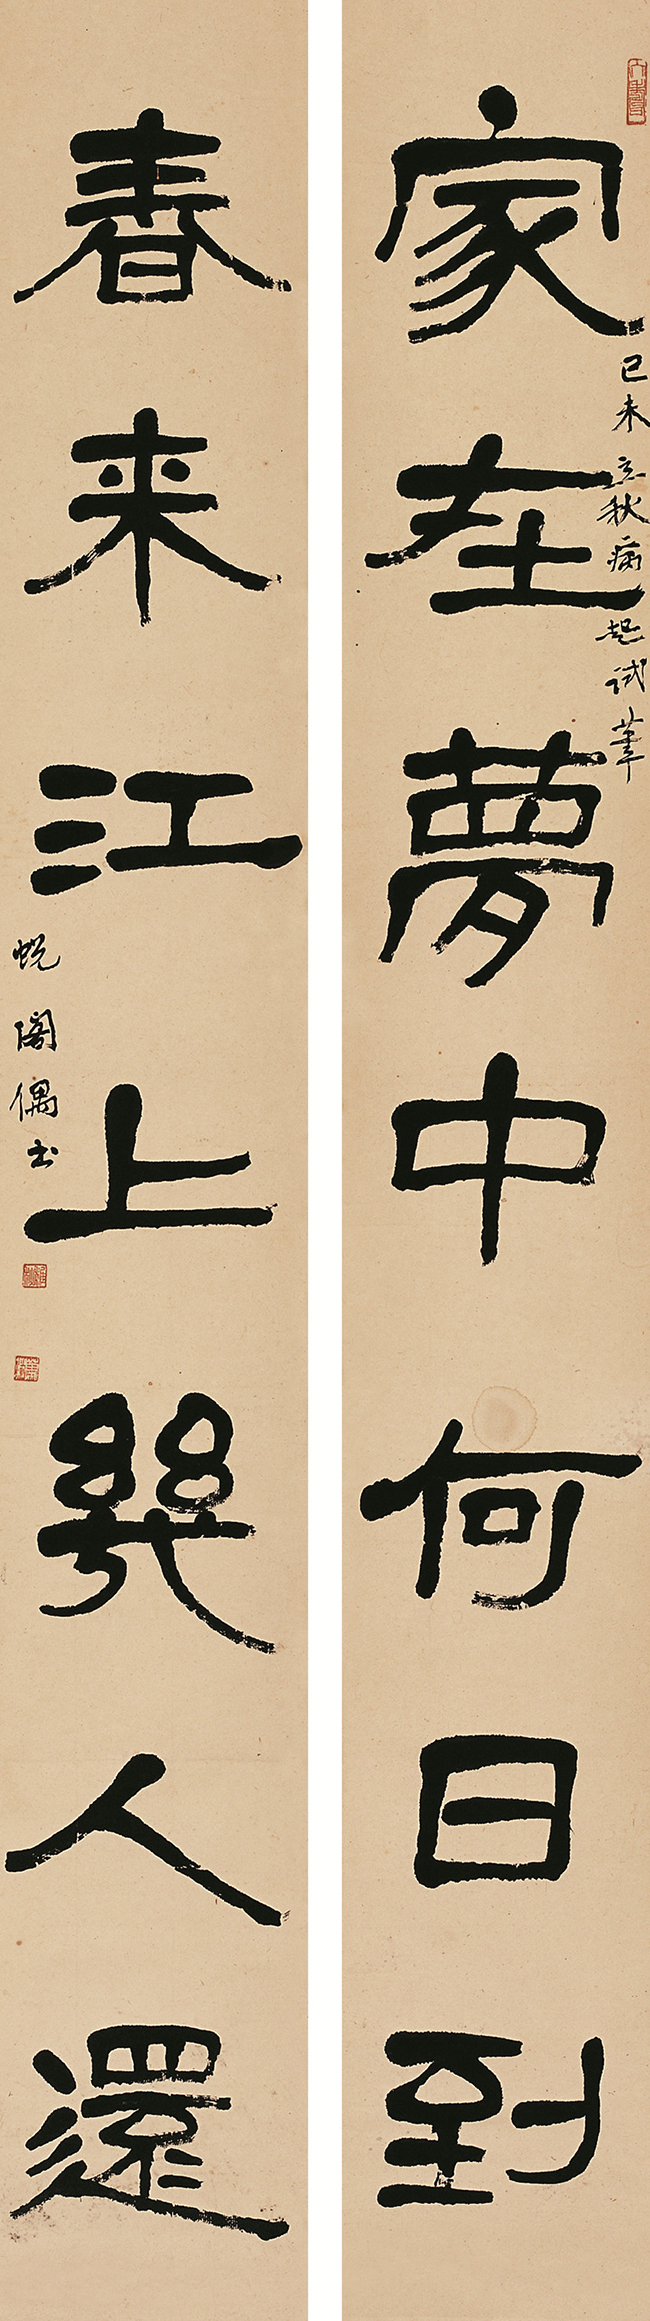 家在夢中何日到
己未立秋病起試筆
春来江上幾人還
蜕阁偶书